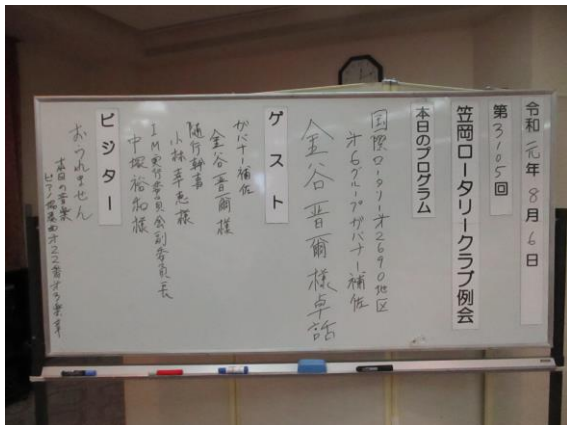 令和元年8月6日
第3105回
笠岡ロータリークラブ例会
本日のプログラム
国際ロータリー第2690地区
第6グループガバナー補佐
金谷晋爾様卓話
ゲスト
ガバナー補佐
金谷晋爾様
随行幹事
小林幸恵様
IM実行委員会副委員長
中塚裕和様
ビジター
おられません
本日の音楽
ピアノ協奏曲第22番第3楽章